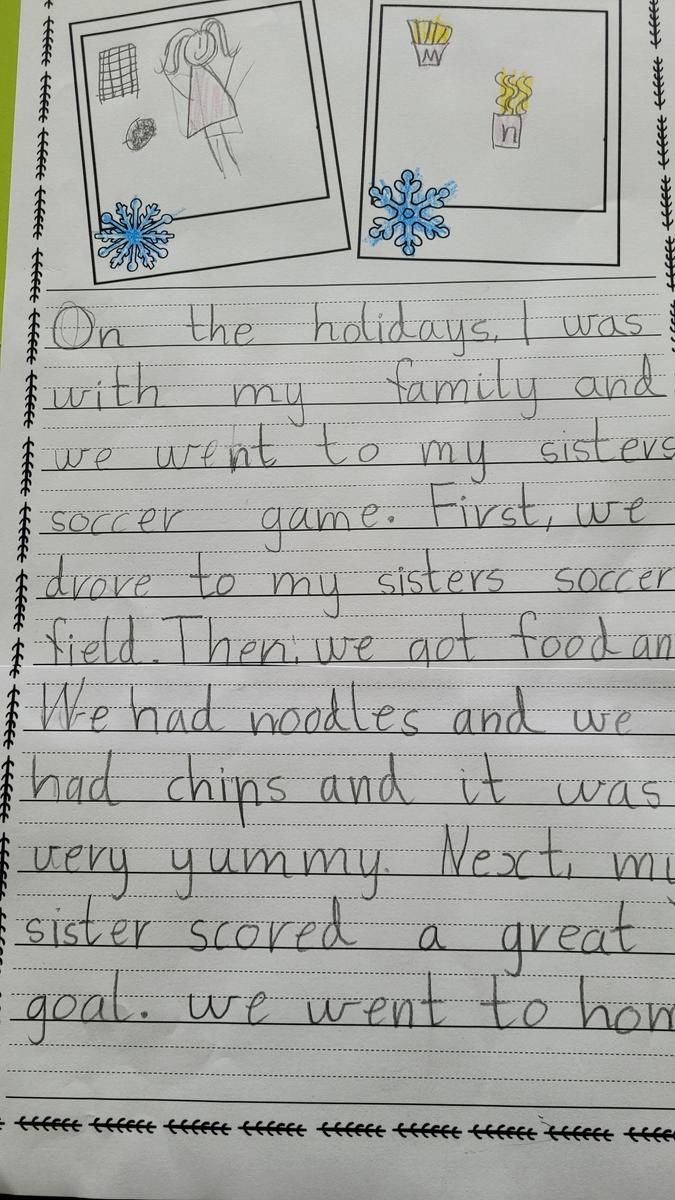 M
n
On the holidays, I was
with my family and
we went to my sisters
soccer game. First, we
drove to my sisters soccer
field. Then, we got food an
We had noodles and we
had chips and it was
very yummy. Next, my
sister scored a great
goal. we went to hom